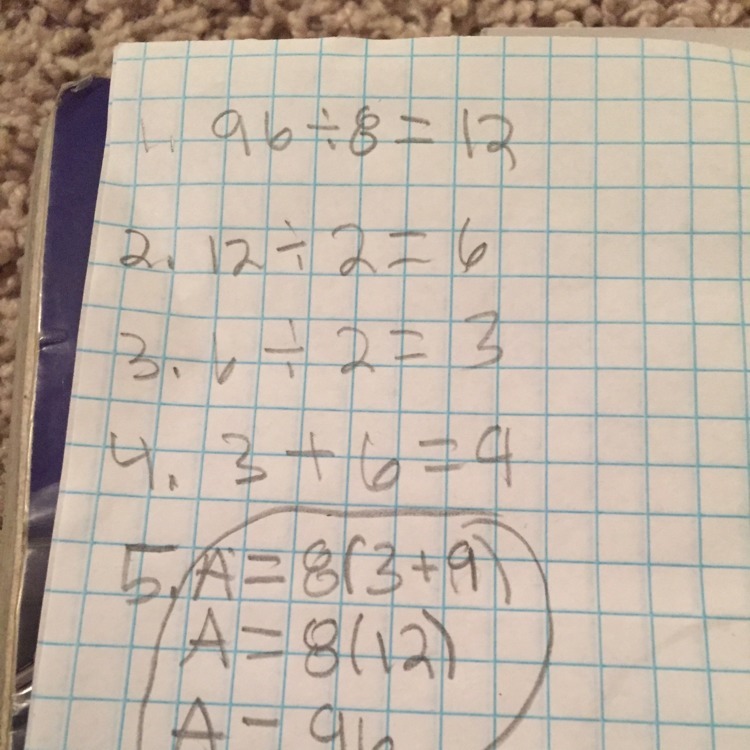 1. 96÷8=12
2. 12÷2=6
3. 6÷2=3
4. 3+6=9
5. A=8(3+9)
A=8(12)
A=96